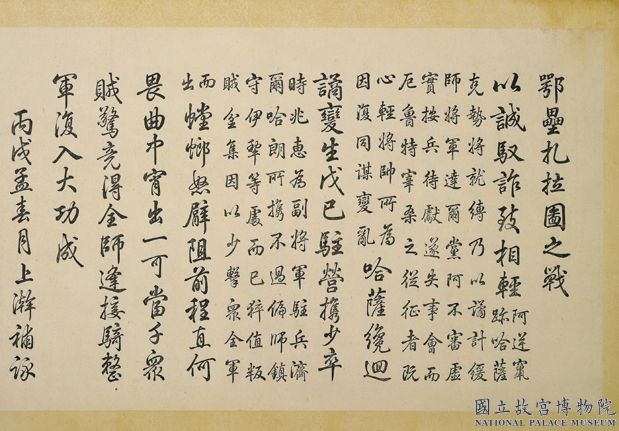 鄂壘扎拉圖之戰
以誠馭詐致相輕
阿逆竄
跡哈薩
克勢將就縛乃以譎計緩
師將軍達爾黨阿不審虛
實按兵待獻遂失事會而
厄魯特宰桑之從征者既
心輕將帥所為
因復同謀變亂
哈薩纔迴
譎變生戊巳駐營攜少卒
時兆惠為副將軍駐兵濟
爾哈朗所攜不過偏師鎮
守伊犂等處而已猝值叛
賊坌集因以少擊衆全軍
而
出
螳螂怒臂阻前程直何
畏曲中宵出一可當千衆
賊驚竟得全師逢接騎整
軍復入大功成
丙戌孟春月上澣補詠
國立故宮博物院
NATIONAL PALACE MUSEUM